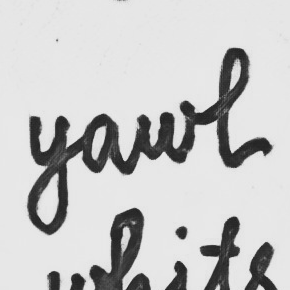 yawl
whits